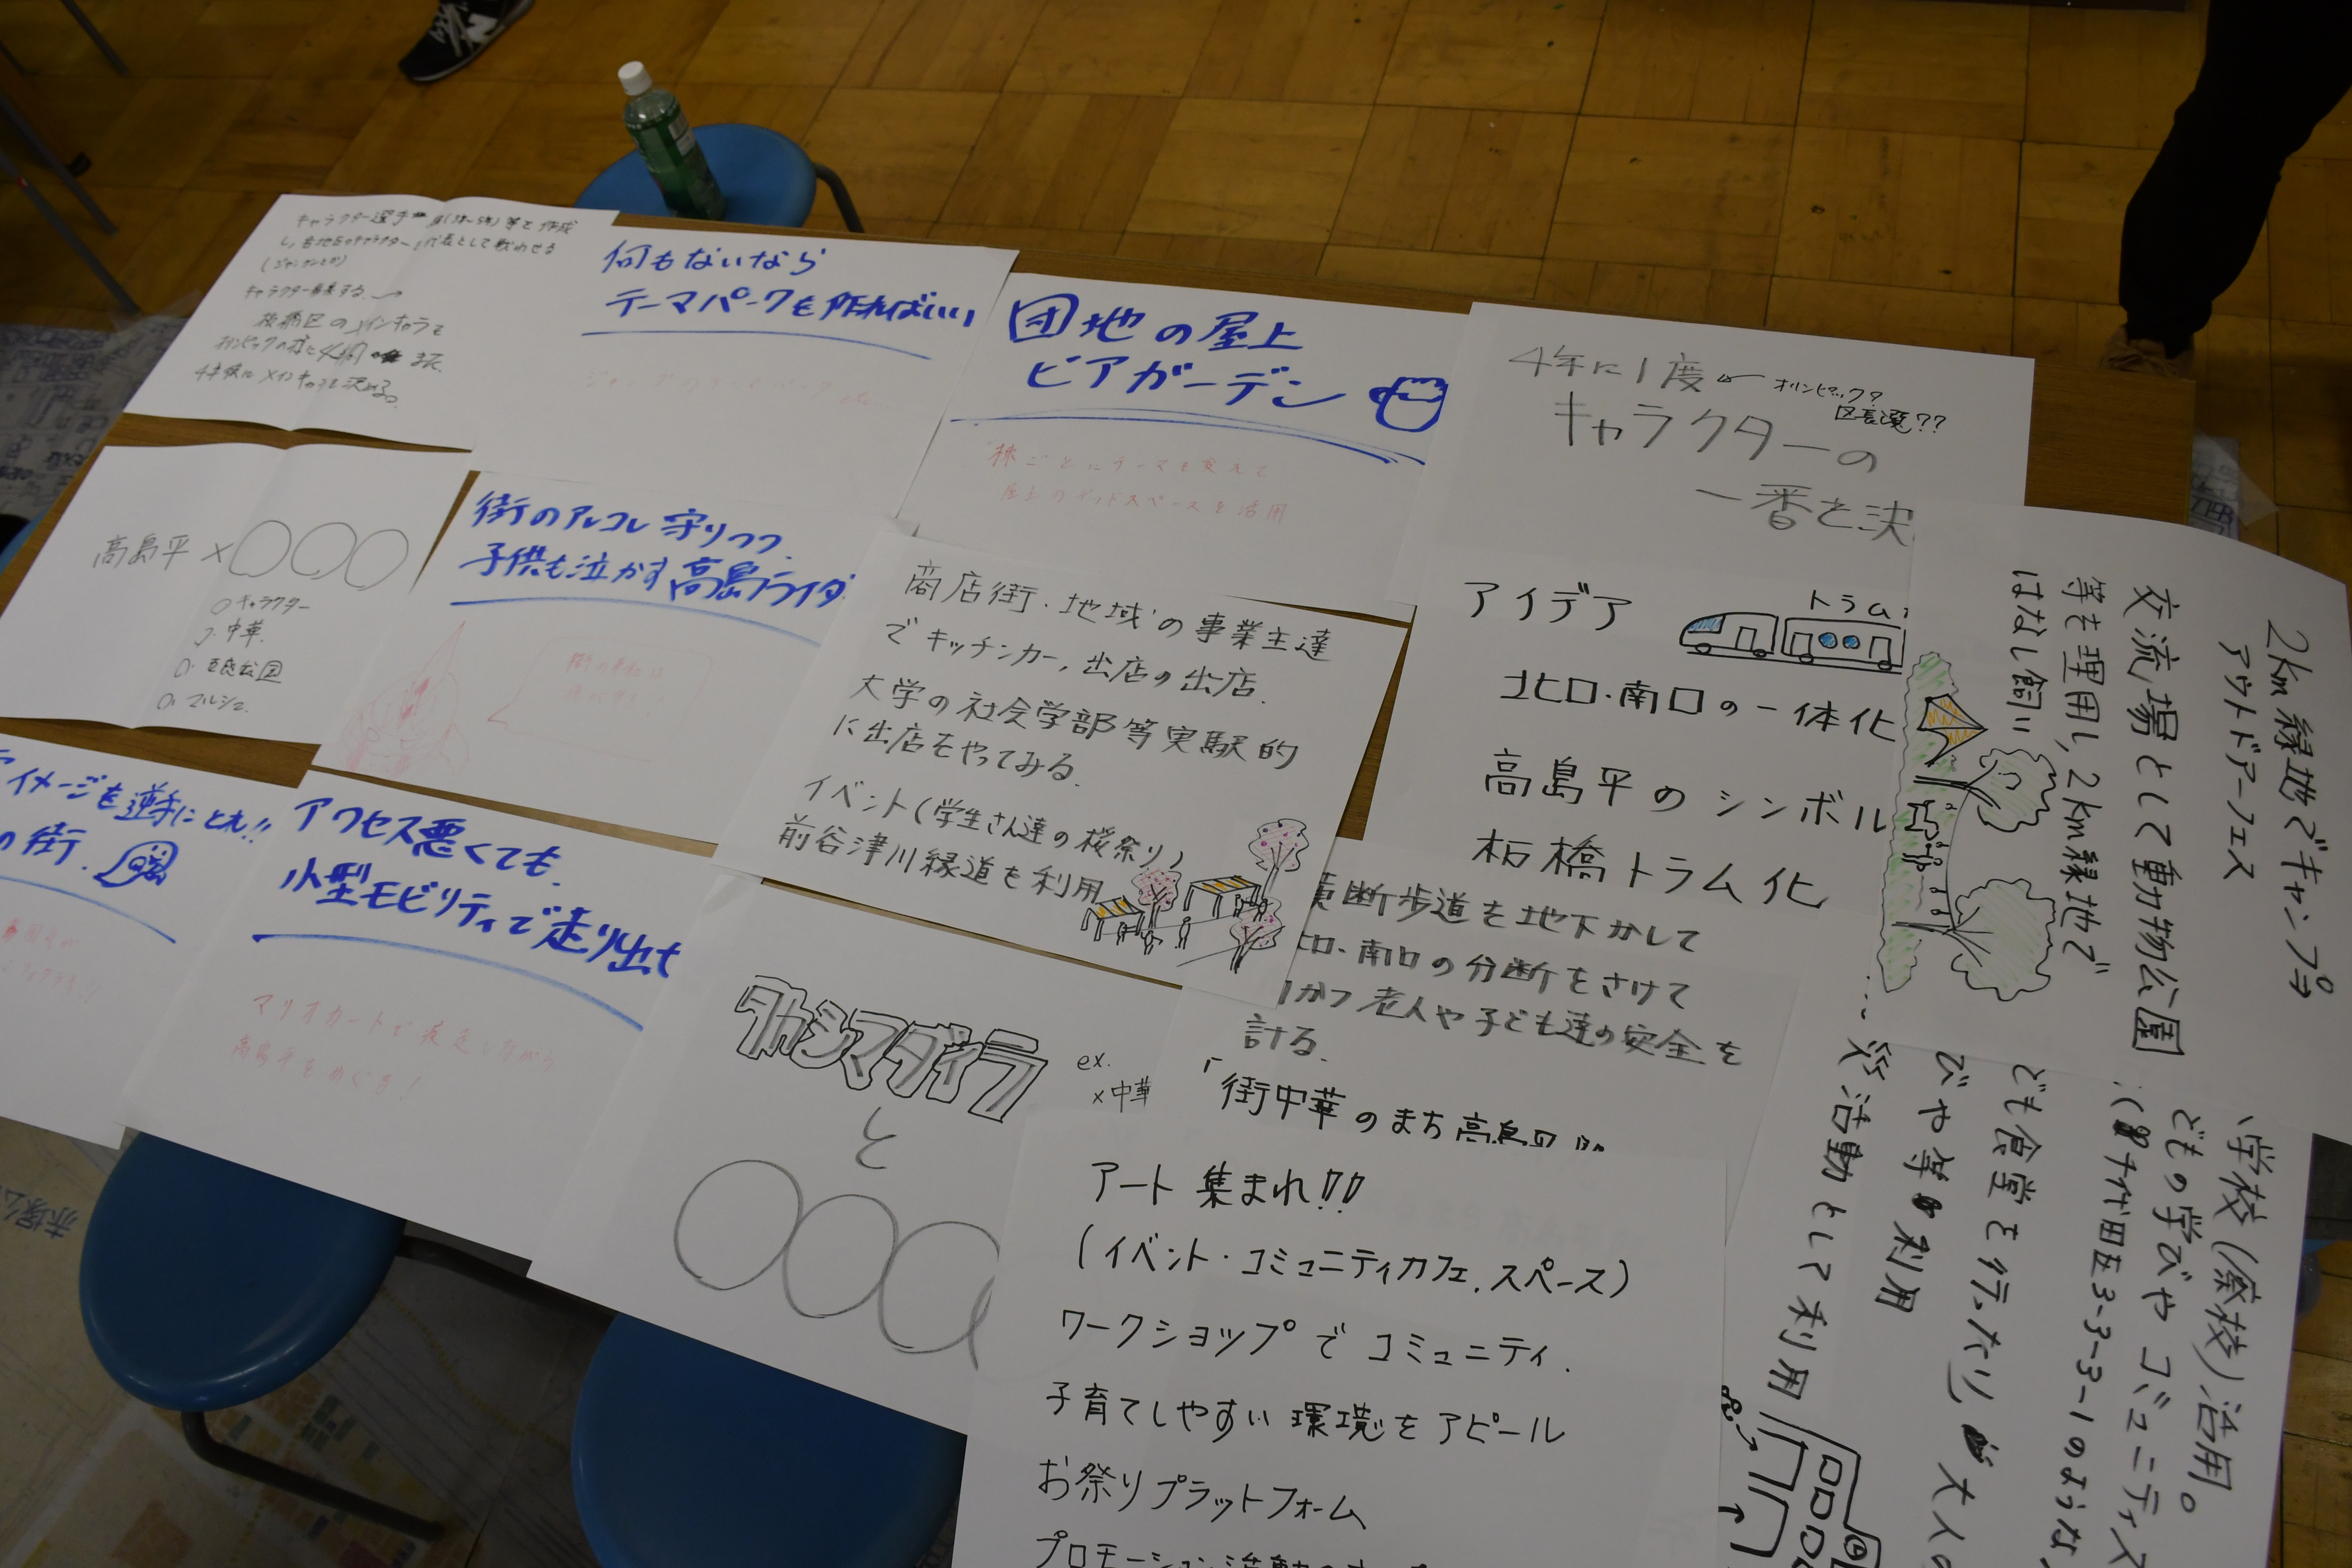 キャラクター選手
し、各地区のキャラクター 代表として戦わせる
キャラクター
板橋区のメインキャラを
オリンピックの様に4年間
4年後にメインキャラを決める。
何もないなら
テーマパークを作ればいい
団地の屋上
ビアガーデン
棟ごとにテーマを変えて
屋上のデッドスペースを活用
4年に1度
オリンピック?
区長選??
キャラクターの
一番を決
高島平×○○○
○キャラクター
中華
マルシェ
街のアレコレ守りつつ、
子供も泣かす高島ライダ
商店街・地域の事業主達
でキッチンカー、出店の出店。
大学の社会学部等実験的
に出店をやってみる。
イベント(学生さん達の桜祭り)
前谷津川緑道を利用
アイデア
トラム
北口・南口の一体化
高島平のシンボル
板橋トラム化
横断歩道を地下かして
北口、南口の分断をさけて
かつ老人や子ども達の安全を
計る。
「街中華のまち高島平
2km緑地でキャンプや
アウトドアーフェス
交流場として動物公園
等を理用し、2km緑地で
はなし飼い
イメージを逆手にとれ!!
の街。
アクセス悪くても、
小型モビリティで走り出せ
マリオカートで疾走しながら
高島平をめぐる!
タカシマダイラ
と
○○○
ex.
×中華
アート 集まれ!!
(イベント・コミュニティカフェ、スペース)
ワークショップで コミュニティ.
子育てしやすい環境をアピール
お祭りプラットフォーム
プロモーション活動
学校(廃校)活用。
どもの学びや コミュニティス
千代田区3331のような
ども食堂を行ったり 大人の
びや等 利用
災活動として利用